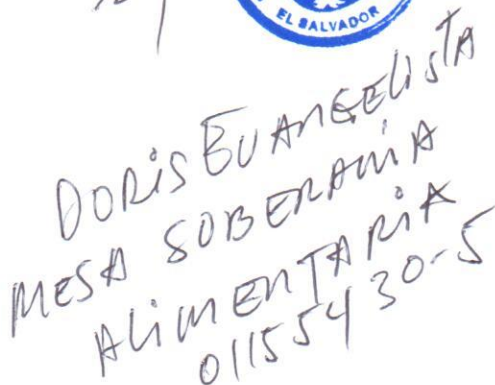 EL SALVADOR
DORIS EVANGELISTA
MESA SOBERANIA
ALIMENTARIA
01155430-5